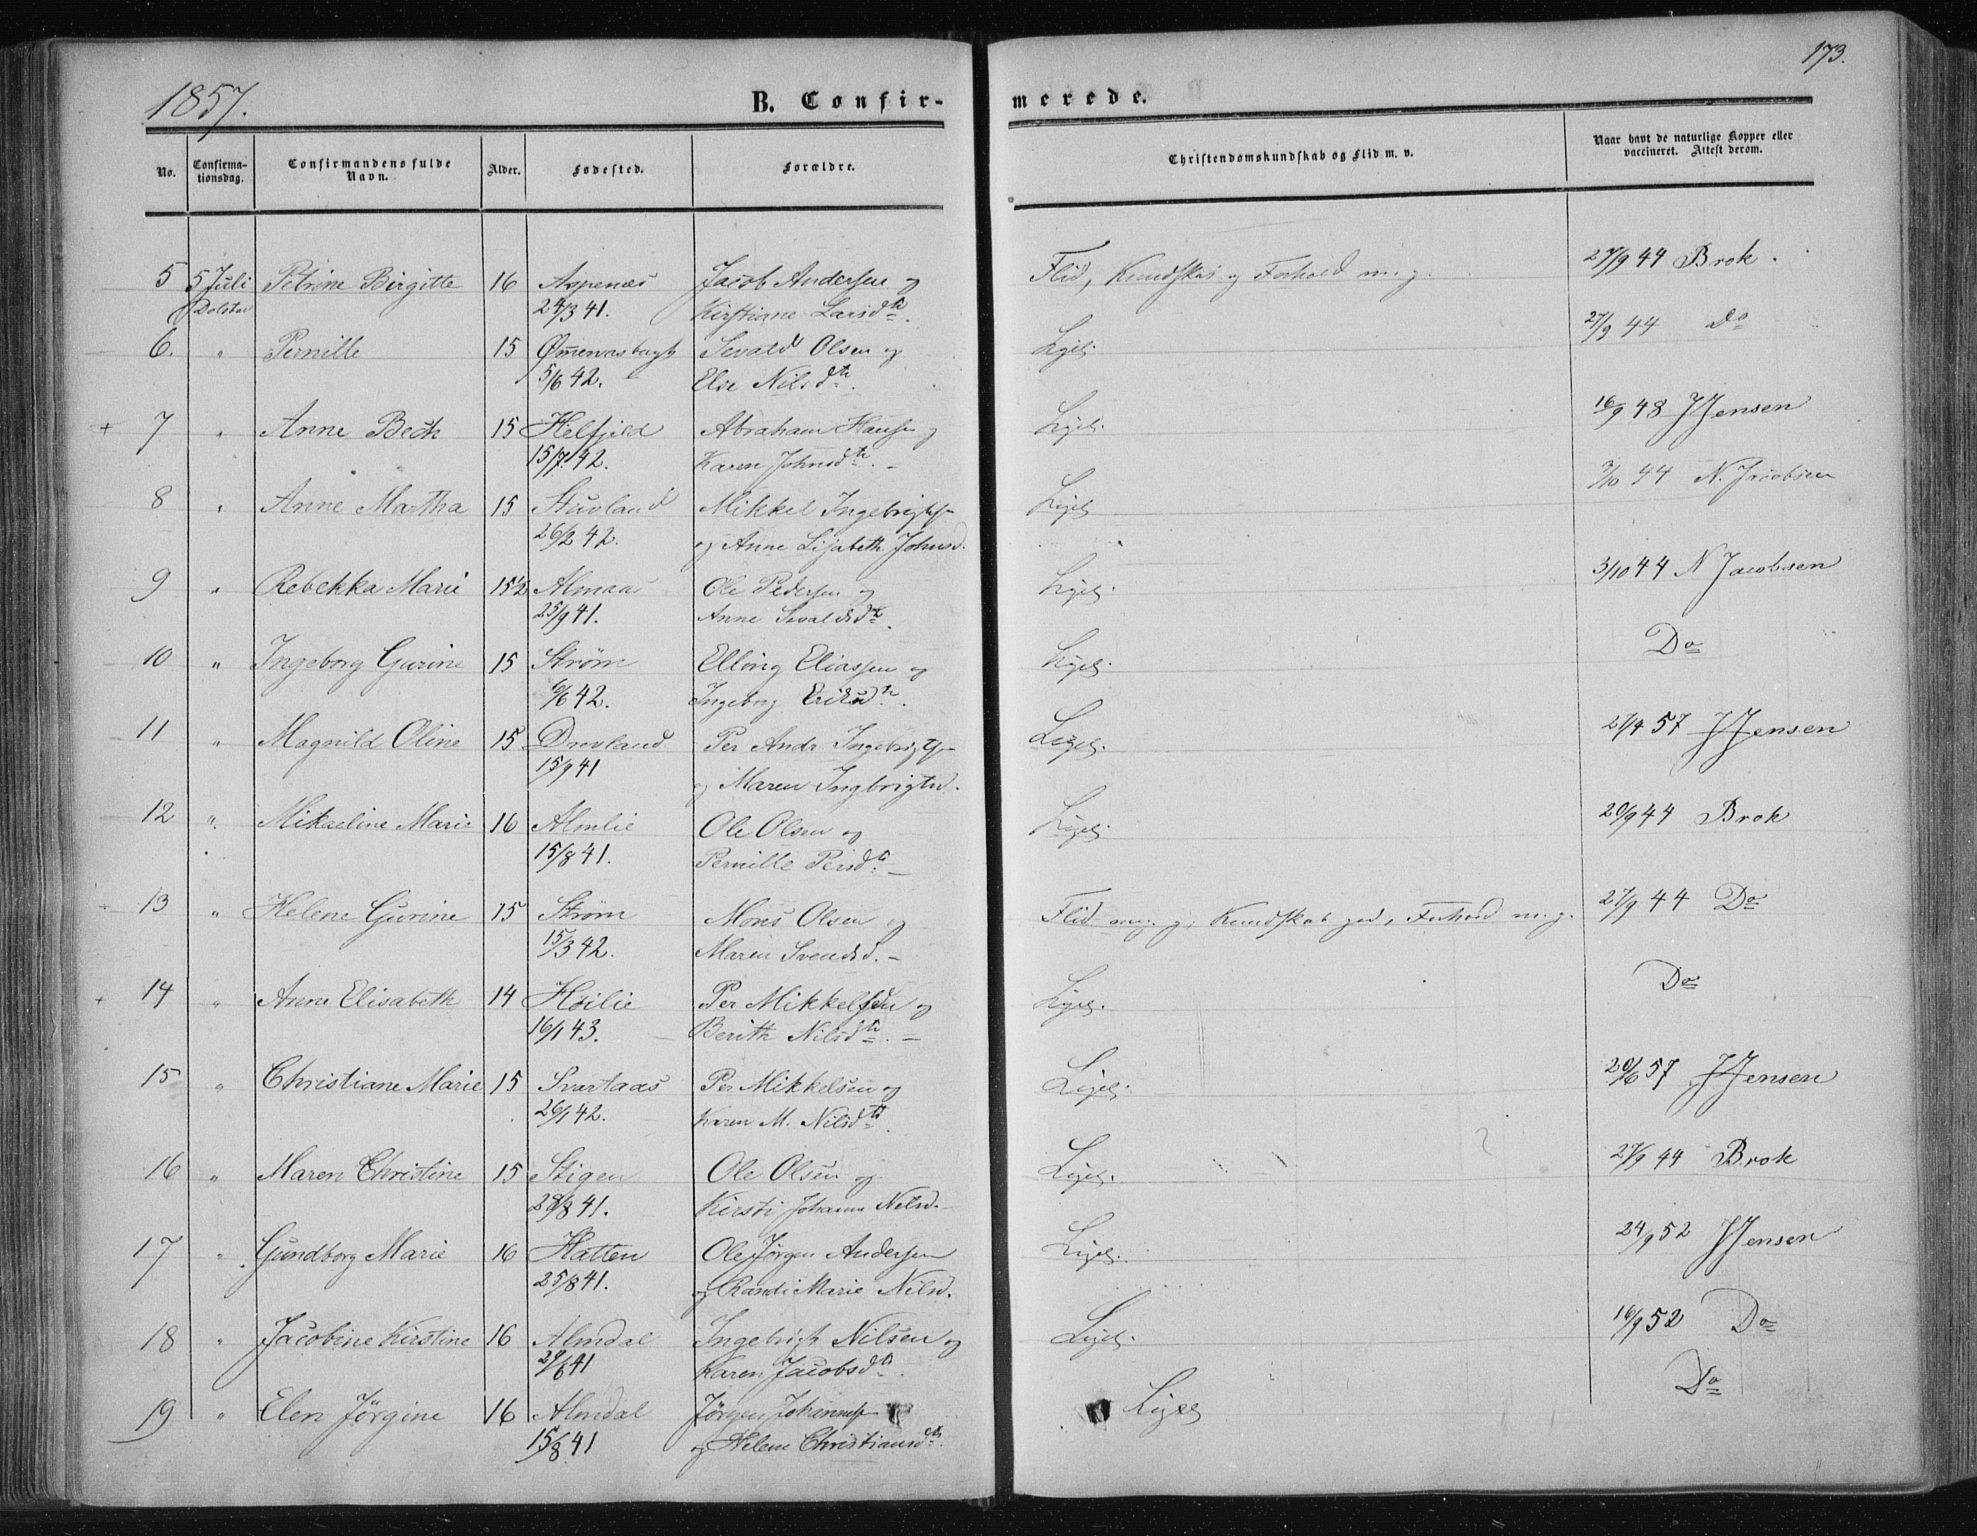 1857.
B. Confir-
merede.
173.
No.
Confirma-
tionsdag.
Confirmandens fulde
Navn.
Alder.
Fødested.
Forældre.
Christendomskundskab og Flid m. v.
Naar havt de naturlige Kopper eller
vaccineret. Attest derom.
5 5 Juli Petrine Birgitte 16 Aspenæs Jacob Andersen og Flid, Kundskab og Forhold m. g. 27/9 44 Brok.
Dolstad 24/3 41. Kirstiane Larsdtr.
6. " Pernille 15 Sevald Olsen og Liges. 27/9 44 Do
5/6 42. Else Nilsdtr.
+ 7 " Anne Bech 15 Helfjeld Abraham Hansen og Liges. 16/9 48 J Jensen
15/7 42. Karen Johnsdtr. –
8 " Anne Martha 15 Stuvland Mikkel Ingebrigts Liges. 3/10 44 N. Jacobsen
26/2 42. og Anne Lisabeth Johnsd.
9 " Rebekka Marie 15½ Almaa Ole Pedersen og Liges. 3/10 44 N Jacobsen
25/9 41. Anne Sevaldsdtr.
10 " Ingeborg Gurine 15 Strøm Elling Eliassen og Liges. Do
/6 42. Ingeborg Eriksdtr.
11 " Magnild Oline 15 Drevland Per Andr Ingebrigts Liges. 27/4 57 J Jensen
15/9 41 og Maren Ingbrigtsd.
12 " Mikaeline Marie 16 Almlie Ole Olsen og Liges. 20/9 44 Brok
15/8 41. Pernille Persdtr. –
13 " Helene Gurine 15 Strøm Mons Olsen og Flid mg. g, Kundskab god, Forhold m. g. 27/9 44 Do
15/3 42. Maren Svendsd. –
+ 14 " Anne Elisabeth 14 Høilie Per Mikkelsen og Liges. Do
16/1 43. Berith Nilsdtr. –
15 " Christiane Marie 15 Svartaas Per Mikkelsen og Liges. 20/6 57 J Jensen
26/1 42. Karen M. Nilsdtr.
16 " Maren Christine 15 Stigen Ole Olsen og Liges. 27/9 44 Brok
28/8 41. Kirsti Johanna Nilsd.
17 " Gundborg Marie 16 Hatten Ole Jørgen Andersen Liges. 24/9 52 J Jensen
25/8 41. og Randi Marie Nilsd.
18 " Jacobine Kirstine 16 Almdal Ingebrigt Nilsen og Liges. 16/9 52 Do
29/6 41 Karen Jacobsdtr.
19 " Elen Jørgine 16 Almdal Jørgen Johannes Liges Do
15/8 41 og Helene Christiansdtr.